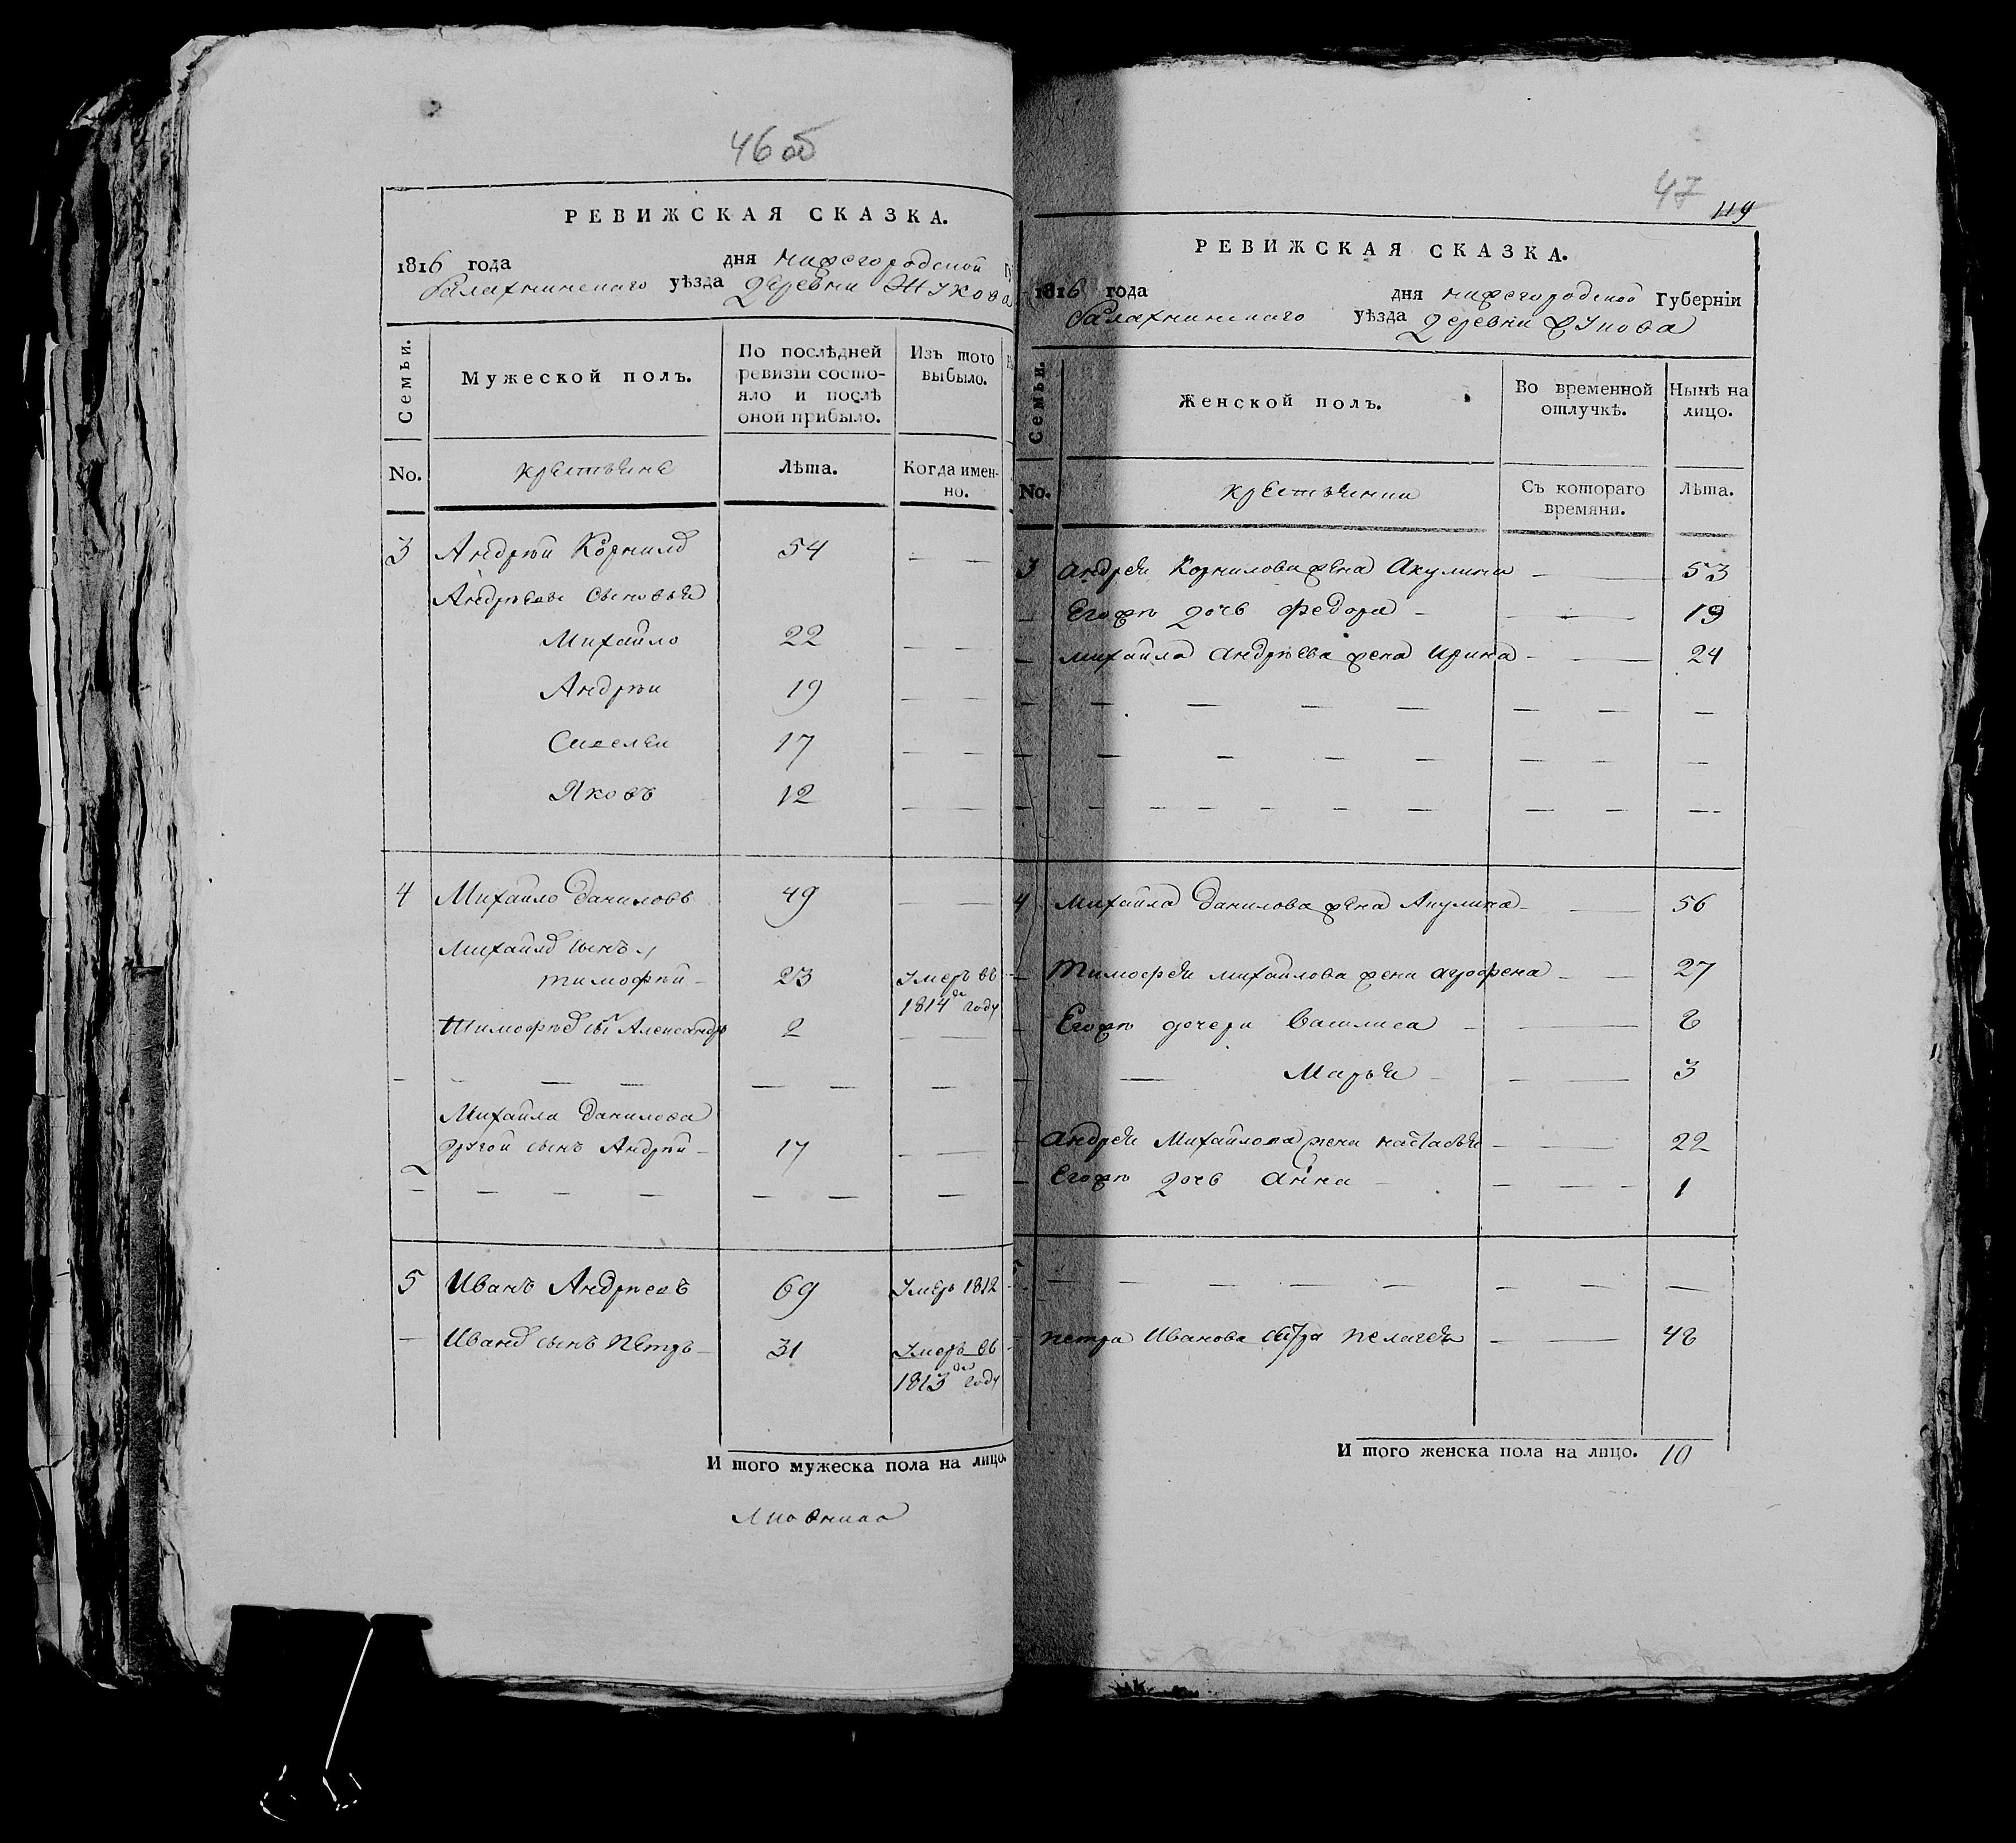 46 об
РЕВИЖСКАЯ СКАЗКА.
1816 года дня нижегородской
балахнинскаго уѣзда деревни Жукова
Семьи. Мужеской полъ. По послѣдней ревизіи состояло и послѣ оной прибыло. Изъ того выбыло.
No. крестьяне Лѣта. Когда именно.
3 Андрѣй Корнилов 54 — —
Андрѣевы сыновья
Михайло 22 — —
Андрѣи 19 — —
Савелеи 17 — —
Яковъ 12 — —
4 Михайло Даниловъ 49 — —
Михайлов сынъ
тимофѣй 23 Умеръ въ
1814 м году
Тимофѣев сы Александръ 2 — —
— — — — — — —
Михайла Данилова
другой сынъ Андрѣй 17 — —
— — — — — — —
5 Иванъ Андрѣевъ 69 Умеръ 1812
— Иванов сынъ Петръ 31 Умеръ въ
1813 м году
И того мужеска пола на лицо.
47
119
РЕВИЖСКАЯ СКАЗКА.
1816 года дня нижегородской Губерніи
балахнинскаго уѣзда деревни Жукова
Семьи. Женской полъ. Во временной отлучкѣ. Нынѣ на лицо.
No. крестьянки Съ котораго времяни. Лѣта.
3 Андрея Корнилова жена Акулина — — 53
— Егожъ дочь Федора — — 19
— михайла андрѣева жена Ирина — — 24
— — — — — — — —
— — — — — — — —
— — — — — — — —
4 Михайла Данилова жена Акулина — — 56
— Тимофея михайлова жена аграфена — — 27
— Егожъ дочери Василиса — — 8
— — Марья — — 3
— андрея Михайлова жена настасья — — 22
— Егожъ дочь анна — — 1
5 — — — — — — — —
— петра Иванова сестра пелагея — — 48
И того женска пола на лицо. 10